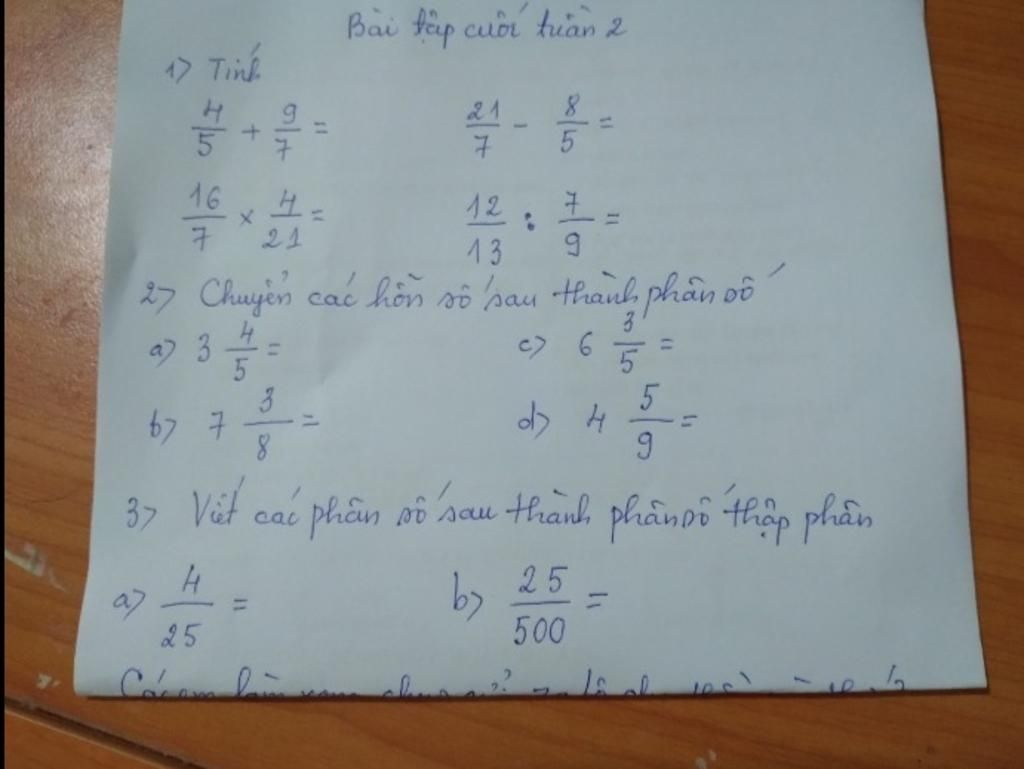 Bài tập cuối tuần 2
1) Tính
4/5 + 9/7 = 21/7 - 8/5 =
16/7 × 4/21 = 12/13 : 7/9 =
2) Chuyển các hỗn số sau thành phân số
a) 3 4/5 = c) 6 3/5 =
b) 7 3/8 = d) 4 5/9 =
3) Viết các phân số sau thành phân số thập phân
a) 4/25 = b) 25/500 =
Các em làm xong